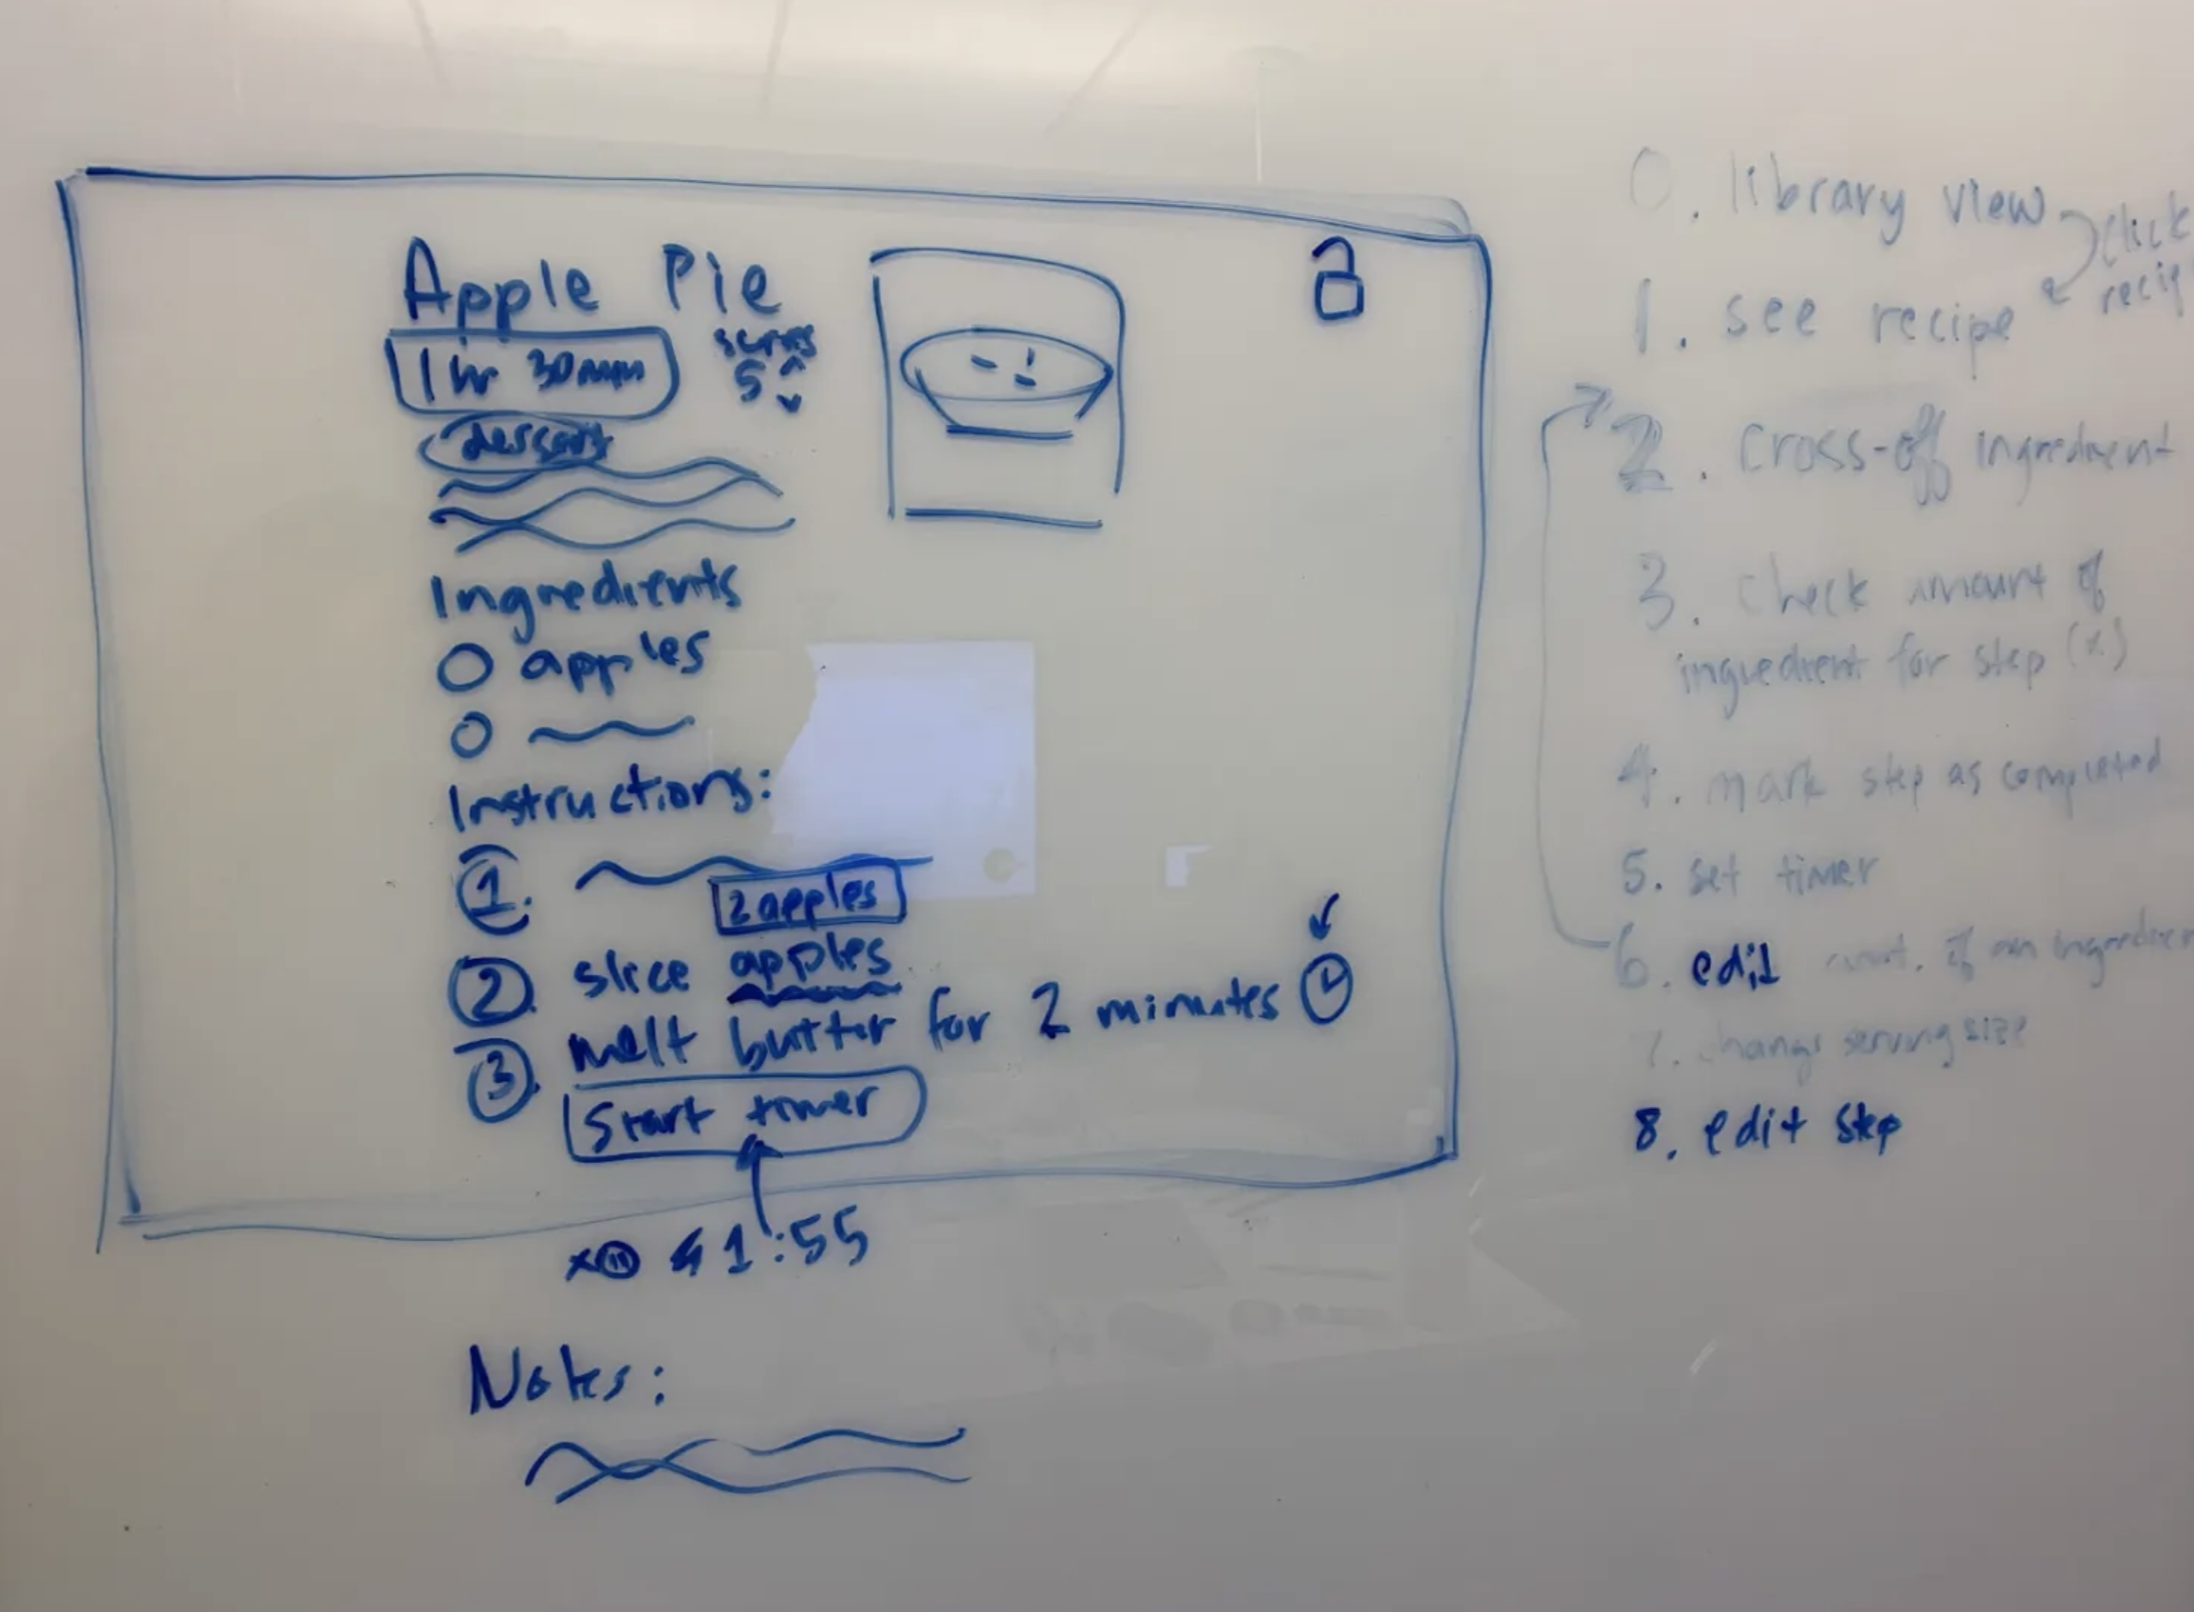 Apple Pie
1 hr 30 min
serves
5
dessert
Ingredients
apples
Instructions:
1.
2 apples
2. slice apples
3. melt butter for 2 minutes
Start timer
1:55
Notes:
0. library view
click
1. see recipe
2. Cross-off ingredient
3. Check amount of
ingredient for step (x)
4. mark step as completed
5. set timer
6. edit amt. of an ingredient
7. change serving size
8. edit step